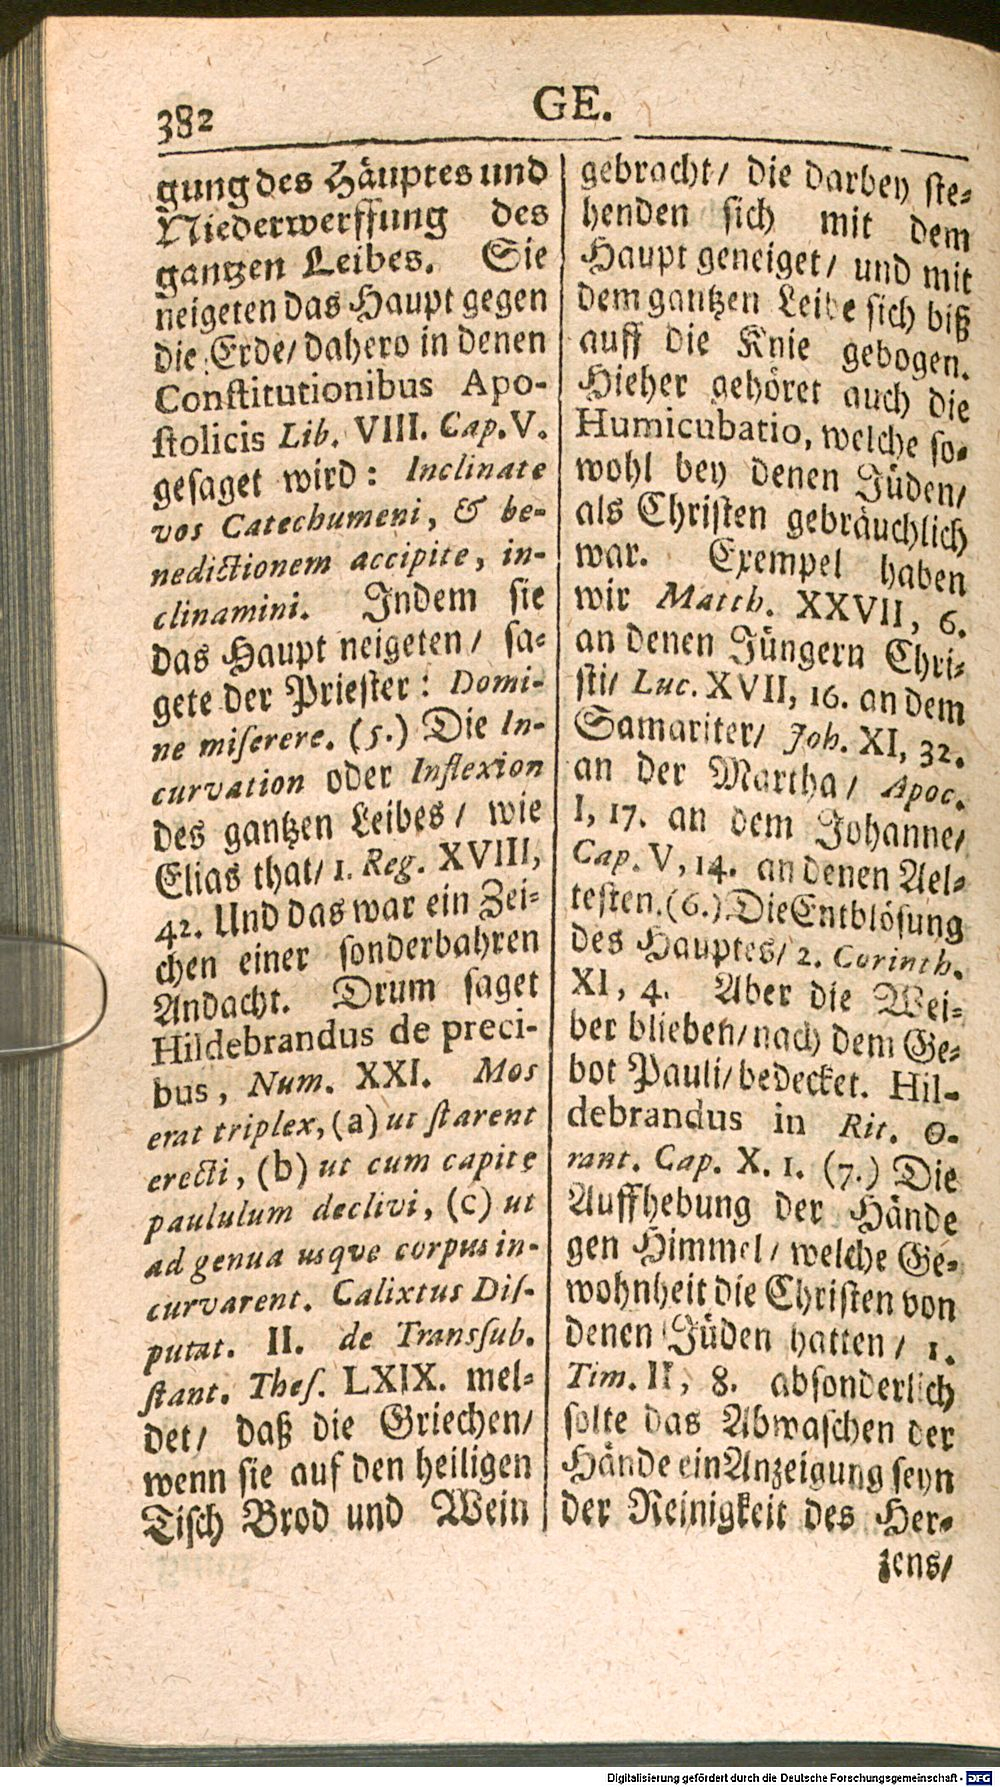 382
GE.
gung des Häuptes und
Niederwerffung des
gantzen Leibes. Sie
neigeten das Haupt gegen
die Erde/ dahero in denen
Constitutionibus Apo-
stolicis Lib. VIII. Cap. V.
gesaget wird: Inclinate
vos Catechumeni, & be-
nedictionem accipite, in-
clinamini. Indem sie
das Haupt neigeten/ sa-
gete der Priester: Domi-
ne miserere. (5.) Die In-
curvation oder Inflexion
des gantzen Leibes/ wie
Elias that/ 1. Reg. XVIII,
42. Und das war ein Zei-
chen einer sonderbahren
Andacht. Drum saget
Hildebrandus de preci-
bus, Num. XXI. Mos
erat triplex, (a) ut starent
erecti, (b) ut cum capite
paululum declivi, (c) ut
ad genua usque corpus in-
curvarent. Calixtus Dis-
putat. II. de Transsub-
stant. Thes. LXIX. mel-
det/ daß die Griechen/
wenn sie auf den heiligen
Tisch Brod und Wein
gebracht/ die darbey ste-
henden sich mit dem
Haupt geneiget/ und mit
dem gantzen Leibe sich biß
auff die Knie gebogen.
Hieher gehöret auch die
Humicubatio, welche so-
wohl bey denen Jüden/
als Christen gebräuchlich
war. Exempel haben
wir Matth. XXVII, 6.
an denen Jüngern Chri-
sti/ Luc. XVII, 16. an dem
Samariter/ Joh. XI, 32.
an der Martha/ Apoc.
I, 17. an dem Johanne/
Cap. V, 14. an denen Ael-
testen. (6.) Die Entblösung
des Hauptes/ 2. Corinth.
XI, 4. Aber die Wei-
ber blieben/ nach dem Ge-
bot Pauli/ bedecket. Hil-
debrandus in Rit. O-
rant. Cap. X. 1. (7.) Die
Auffhebung der Hände
gen Himmel/ welche Ge-
wohnheit die Christen von
denen Jüden hatten/ 1.
Tim. II, 8. absonderlich
solte das Abwaschen der
Hände ein Anzeigung seyn
der Reinigkeit des Her-
zens/
Digitalisierung gefördert durch die Deutsche Forschungsgemeinschaft - DFG